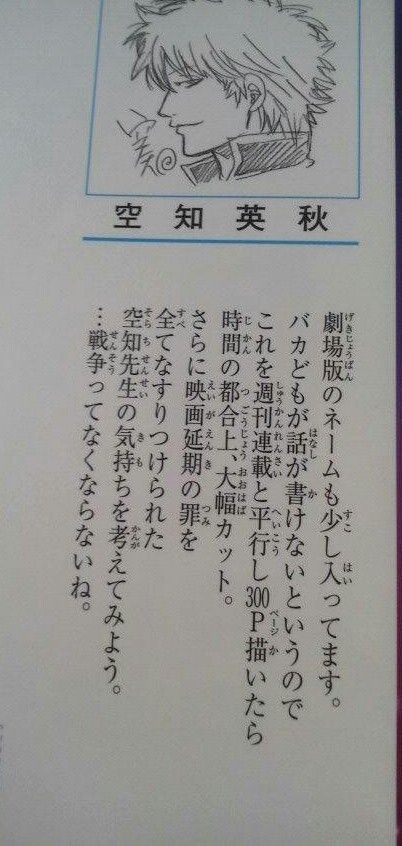 空知英秋
劇場版のネームも少し入ってます。
バカどもが話が書けないというので
これを週刊連載と平行し300P描いたら
時間の都合上、大幅カット。
さらに映画延期の罪を
全てなすりつけられた
空知先生の気持ちを考えてみよう。
…戦争ってなくならないね。